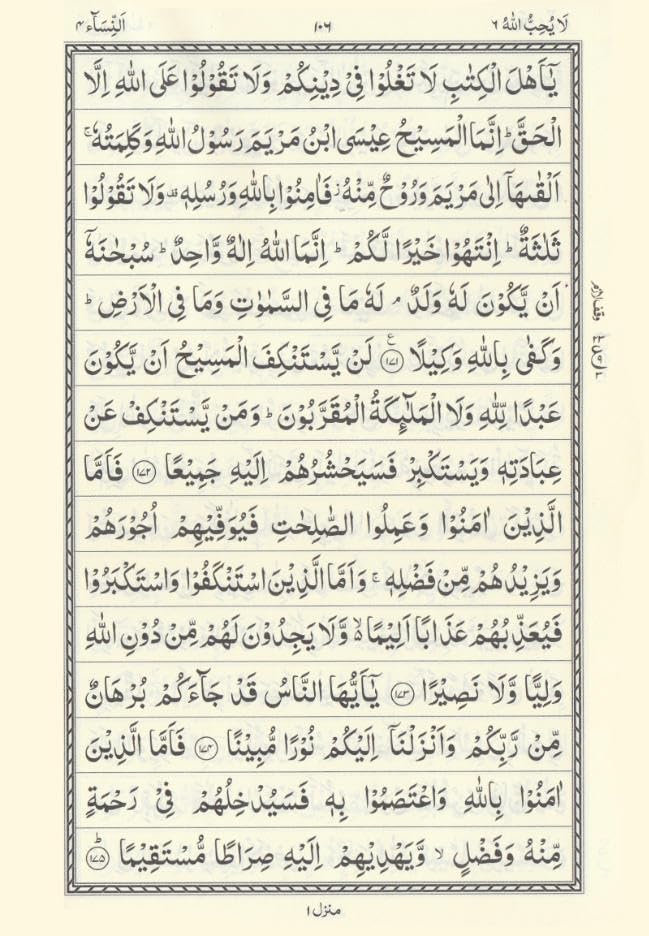 لَا يُحِبُّ اللهُ ٦ ١٠٦ اَلنِّسَآء ٤
يٰۤاَهْلَ الْكِتٰبِ لَا تَغْلُوْا فِيْ دِيْنِكُمْ وَلَا تَقُوْلُوْا عَلَى اللهِ اِلَّا
الْحَقَّ ؕ اِنَّمَا الْمَسِيْحُ عِيْسَى ابْنُ مَرْيَمَ رَسُوْلُ اللهِ وَكَلِمَتُهٗ ۚ
اَلْقٰىهَاۤ اِلٰى مَرْيَمَ وَرُوْحٌ مِّنْهُ ؗ فَاٰمِنُوْا بِاللهِ وَرُسُلِهٖ ۫ وَلَا تَقُوْلُوْا
ثَلٰثَةٌ ؕ اِنْتَهُوْا خَيْرًا لَّكُمْ ؕ اِنَّمَا اللهُ اِلٰهٌ وَّاحِدٌ ؕ سُبْحٰنَهٗۤ
اَنْ يَّكُوْنَ لَهٗ وَلَدٌ ۘ لَهٗ مَا فِي السَّمٰوٰتِ وَمَا فِي الْاَرْضِ ؕ
وَكَفٰى بِاللهِ وَكِيْلًا ﴿١٧١﴾ ع لَنْ يَّسْتَنْكِفَ الْمَسِيْحُ اَنْ يَّكُوْنَ
عَبْدًا لِّلّٰهِ وَلَا الْمَلٰٓئِكَةُ الْمُقَرَّبُوْنَ ؕ وَمَنْ يَّسْتَنْكِفْ عَنْ
عِبَادَتِهٖ وَيَسْتَكْبِرْ فَسَيَحْشُرُهُمْ اِلَيْهِ جَمِيْعًا ﴿١٧٢﴾ فَاَمَّا
الَّذِيْنَ اٰمَنُوْا وَعَمِلُوا الصّٰلِحٰتِ فَيُوَفِّيْهِمْ اُجُوْرَهُمْ
وَيَزِيْدُهُمْ مِّنْ فَضْلِهٖ ۚ وَاَمَّا الَّذِيْنَ اسْتَنْكَفُوْا وَاسْتَكْبَرُوْا
فَيُعَذِّبُهُمْ عَذَابًا اَلِيْمًا ۙ وَّلَا يَجِدُوْنَ لَهُمْ مِّنْ دُوْنِ اللهِ
وَلِيًّا وَّلَا نَصِيْرًا ﴿١٧٣﴾ يٰۤاَيُّهَا النَّاسُ قَدْ جَآءَكُمْ بُرْهَانٌ
مِّنْ رَّبِّكُمْ وَاَنْزَلْنَاۤ اِلَيْكُمْ نُوْرًا مُّبِيْنًا ﴿١٧٤﴾ فَاَمَّا الَّذِيْنَ
اٰمَنُوْا بِاللهِ وَاعْتَصَمُوْا بِهٖ فَسَيُدْخِلُهُمْ فِيْ رَحْمَةٍ
مِّنْهُ وَفَضْلٍ ۙ وَّيَهْدِيْهِمْ اِلَيْهِ صِرَاطًا مُّسْتَقِيْمًا ﴿١٧٥﴾ ؕ
وقف لازم
منزل ١